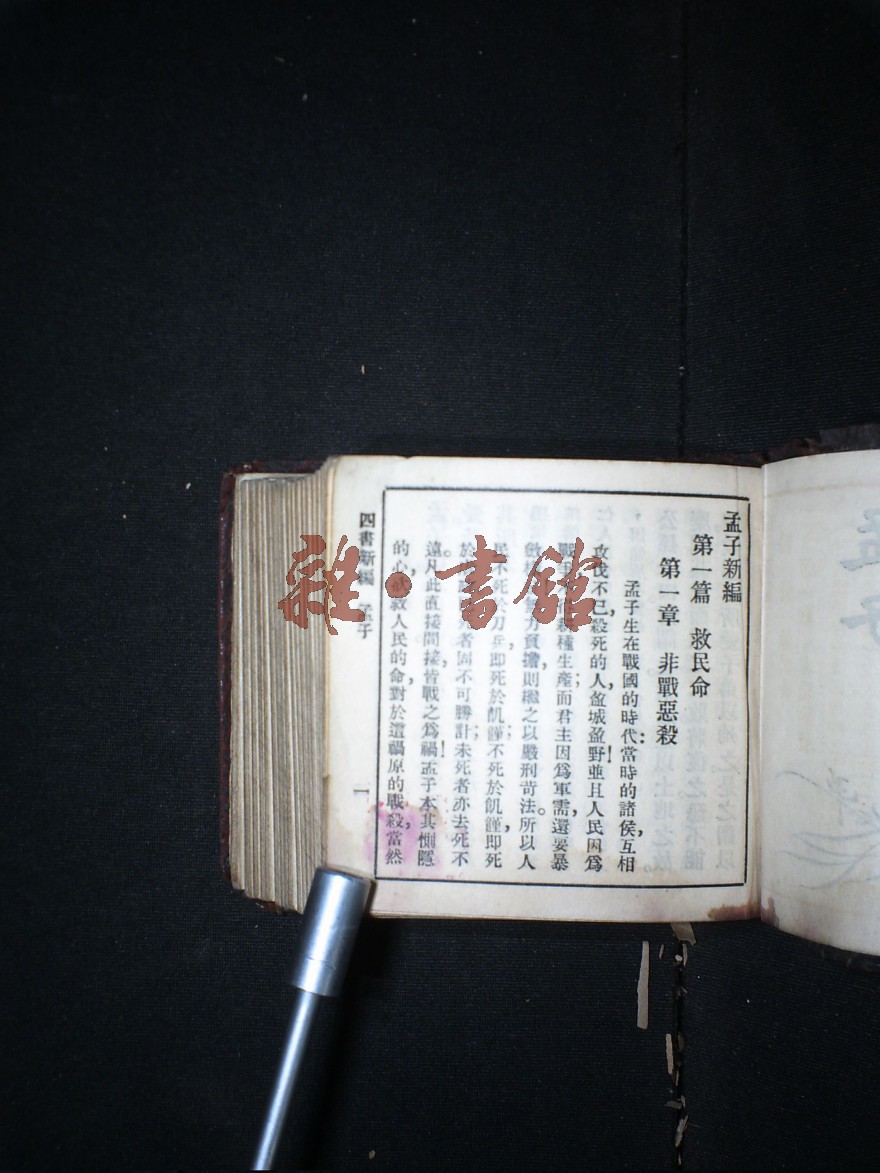 孟子新編
第一篇 救民命
第一章 非戰惡殺
孟子生在戰國的時代:當時的諸侯互相
攻伐不已,殺死的人,盈城盈野!並且人民因爲
種生產;而君主因爲軍需,還要暴
力負擔,則繼之以嚴刑苛法。所以人
民不死刀兵,即死於飢饉;不死於飢饉,即死
者固不可勝計,未死者亦去死不
遠。凡此直接間接,皆戰之爲禍!孟子本其惻隱
的心,救人民的命,對於這禍原的戰殺,當然
四書新編 孟子
一
雜·書館
孟子